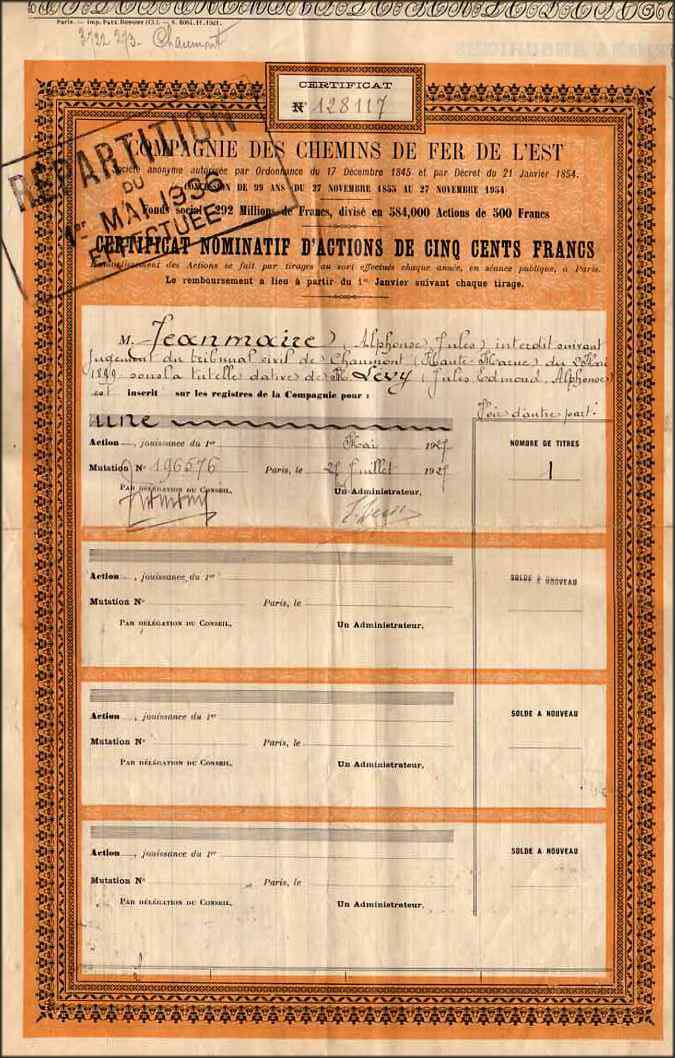 Paris. — Imp. Paul Dupont (Cl.) 
3/22 2/3. Chaumont
CERTIFICAT
N° 128117
COMPAGNIE DES CHEMINS DE FER DE L'EST
Société anonyme autorisée par Ordonnance du 17 Décembre 1845 et par Décret du 21 Janvier 1854.
CONCESSION DE 99 ANS, DU 27 NOVEMBRE 1855 AU 27 NOVEMBRE 1954
Fonds social: 292 Millions de Francs, divisé en 584,000 Actions de 500 Francs
CERTIFICAT NOMINATIF D'ACTIONS DE CINQ CENTS FRANCS
Remboursement des Actions se fait par tirages au sort effectués chaque année, en séance publique, à Paris.
Le remboursement a lieu à partir du 1er Janvier suivant chaque tirage.
RÉPARTITION
DU
1er MAI 1936
EFFECTUÉE
M. Jeanmaire (Alphonse Jules) interdit suivant
jugement du tribunal civil de Chaumont (Haute-Marne) du Mai
1899 sous la tutelle dative de M. Lévy (Jules Edmond, Alphonse)
est inscrit sur les registres de la Compagnie pour :
Voir d'autre part.
UNE
Action, jouissance du 1er Mai 1927
NOMBRE DE TITRES
1
Mutation N° 196576 Paris, le 27 Juillet 1927
PAR DÉLÉGATION DU CONSEIL, Un Administrateur,
Action, jouissance du 1er
SOLDE A NOUVEAU
Mutation N° Paris, le
PAR DÉLÉGATION DU CONSEIL, Un Administrateur,
Action, jouissance du 1er
SOLDE A NOUVEAU
Mutation N° Paris, le
PAR DÉLÉGATION DU CONSEIL, Un Administrateur,
Action, jouissance du 1er
SOLDE A NOUVEAU
Mutation N° Paris, le
PAR DÉLÉGATION DU CONSEIL, Un Administrateur,